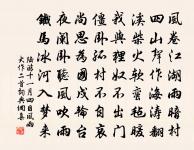 風卷江湖雨暗村
四山聲作海濤翻
溪柴火軟蠻氈暖
我與狸奴不出門
僵卧孤村不自哀
尚思為國戍輪臺
夜闌卧聽風吹雨
鐵馬冰河入夢來
陸游十一月四日風雨
大作二首